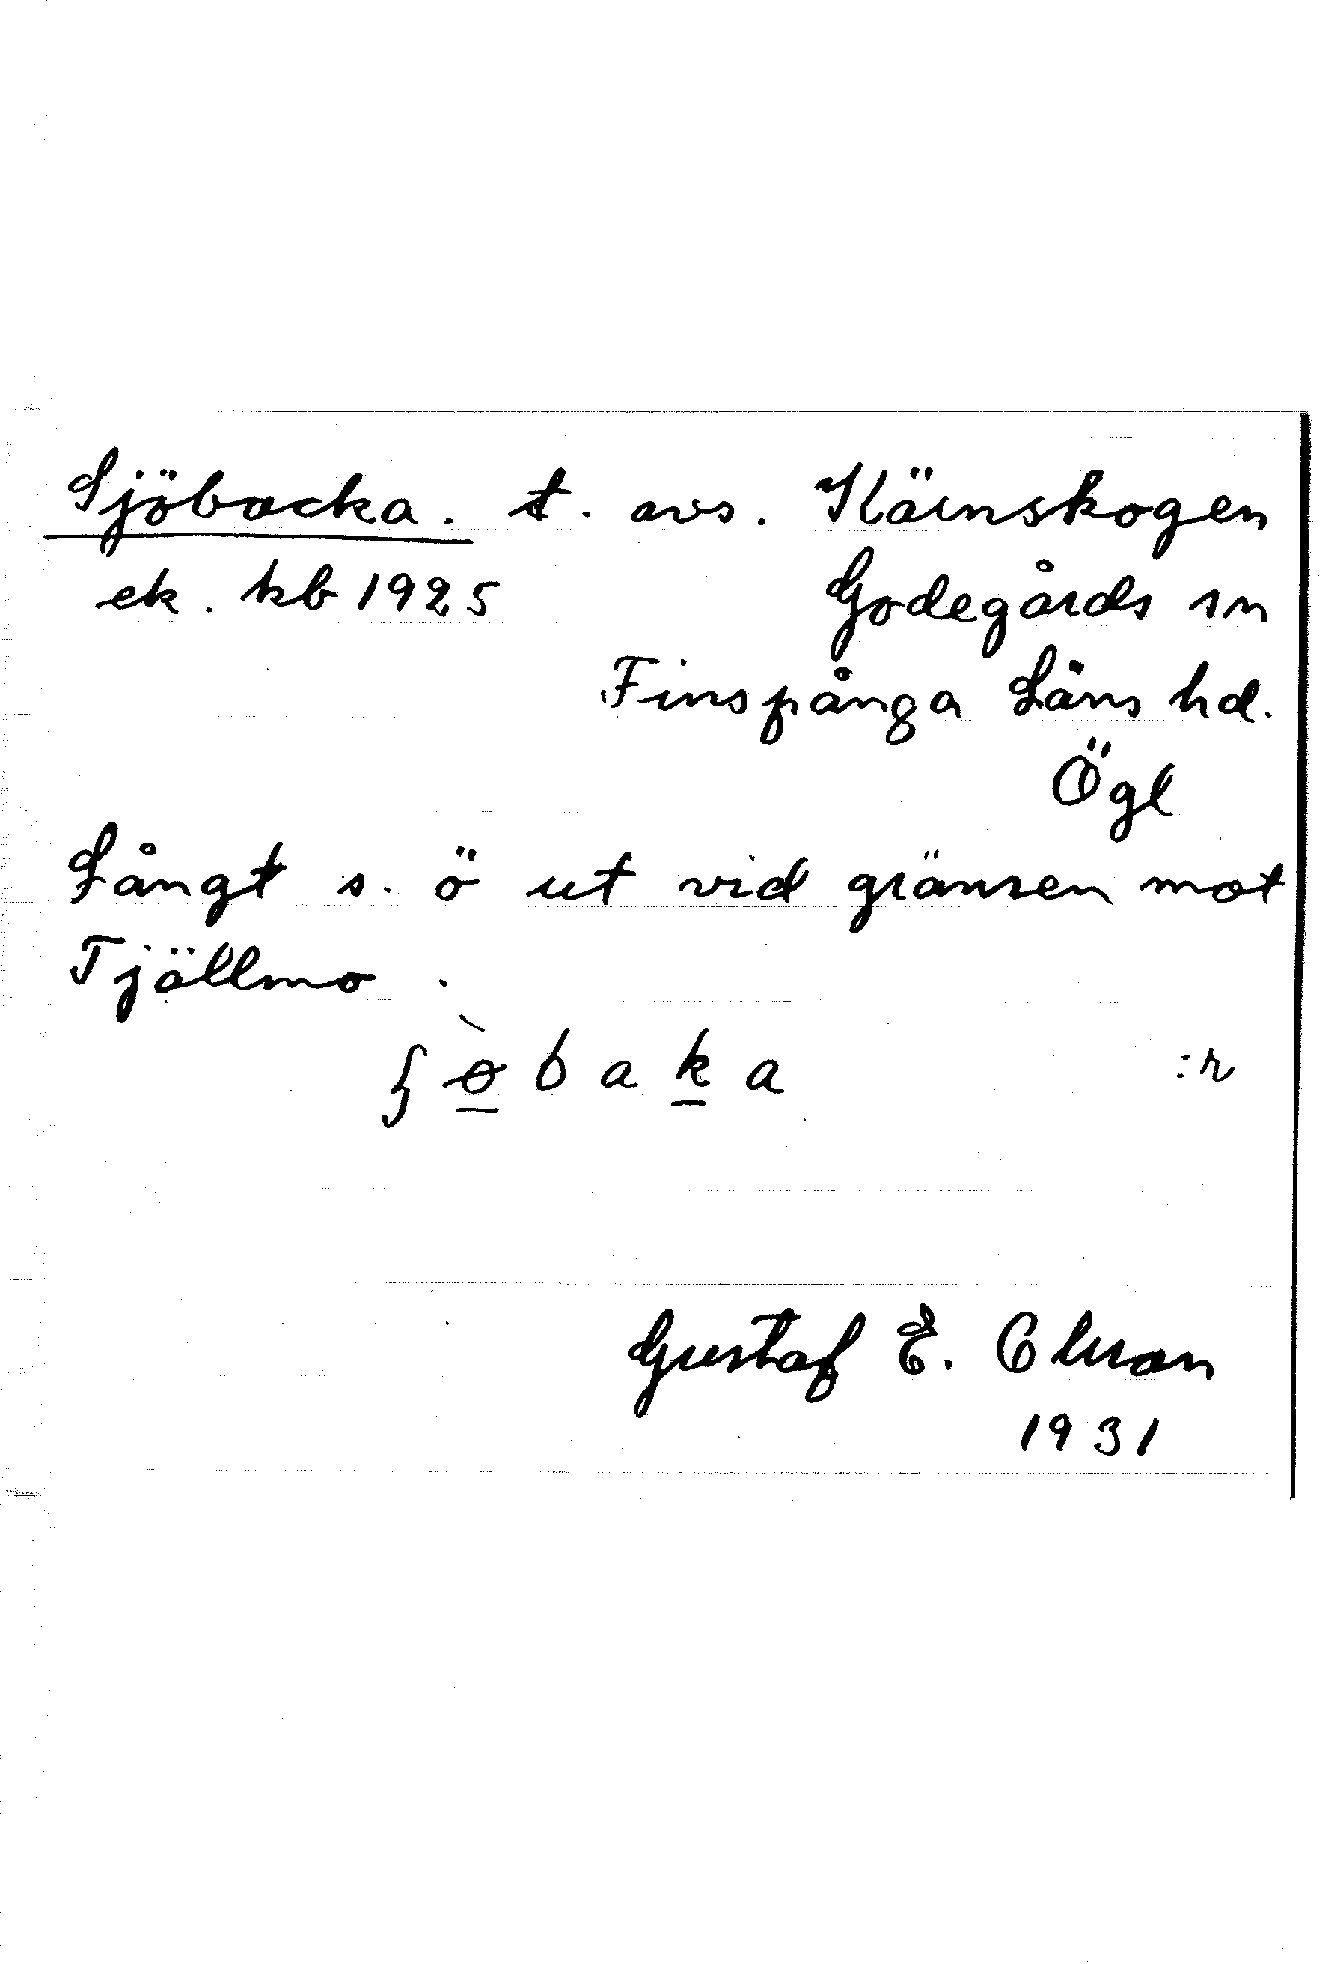 Sjöbacka. t. avs. Kärnskogen
ek. kb 1925 Godegårds sn
Finspånga Läns hd.
Ögl
Långt s. ö ut vid gränsen mot
Tjällmo.
ʃøbaka :r
Gustaf E. Olsson
1931